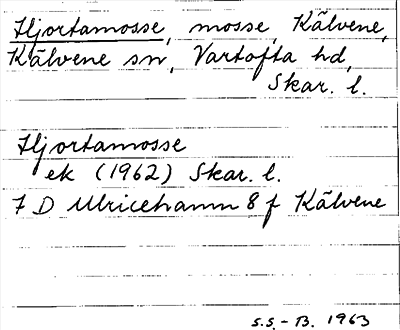 Hjortamosse, mosse, Kälvene,
Kälvene sn, Vartofta hd,
Skar. l.
Hjortamosse
ek (1962) Skar. l.
7 D Ulricehamn 8 f Kälvene
S.S. - B. 1963